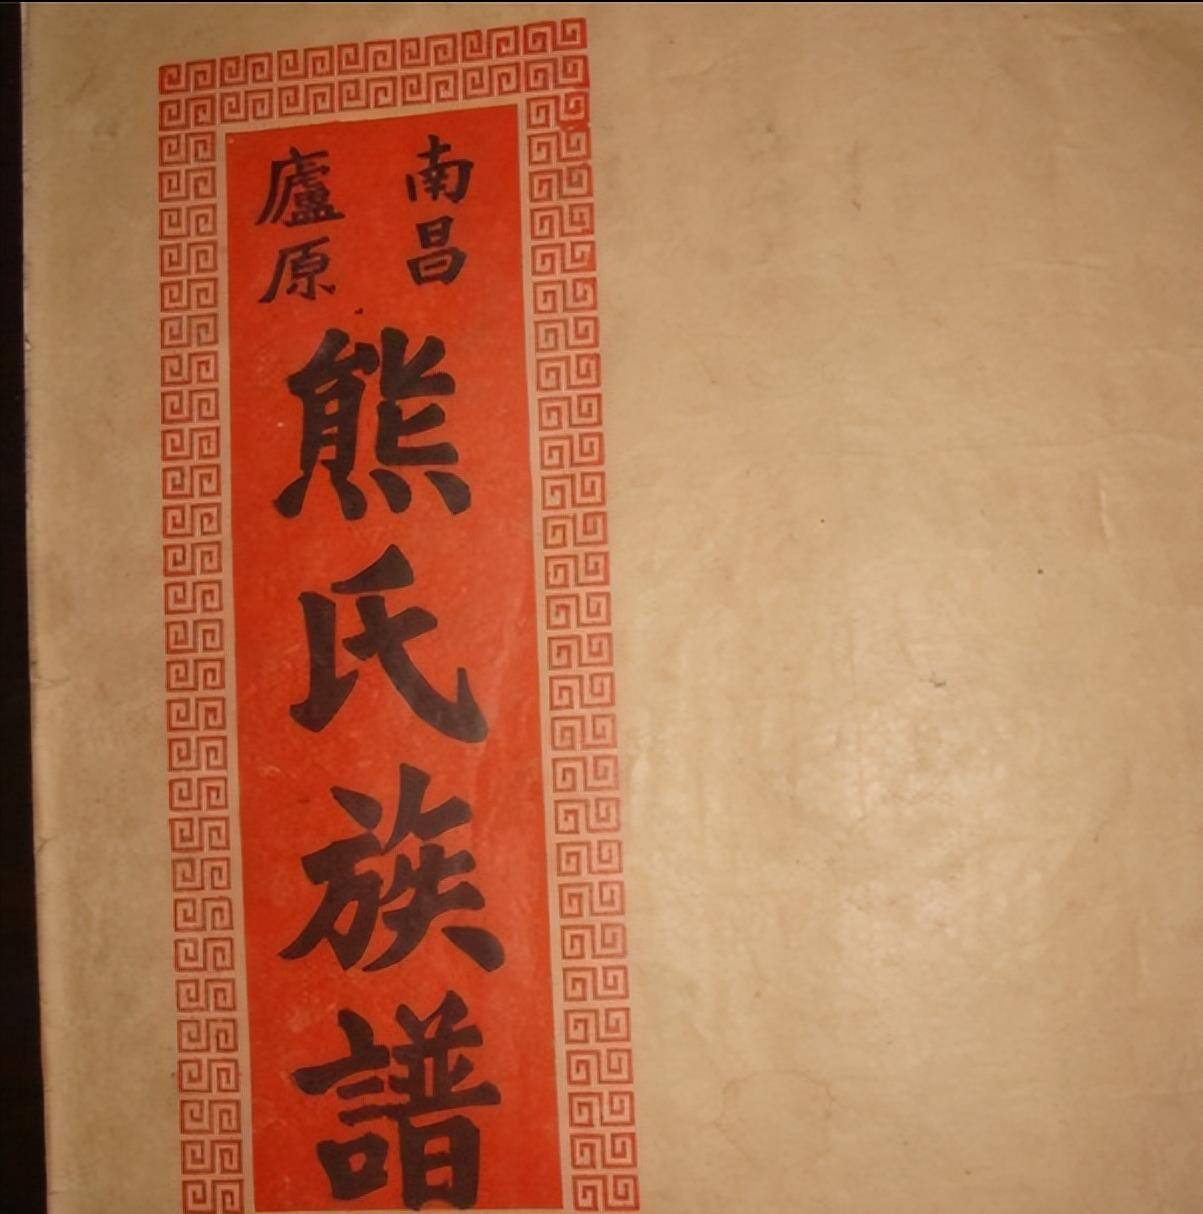 南昌
廬原
熊氏族譜